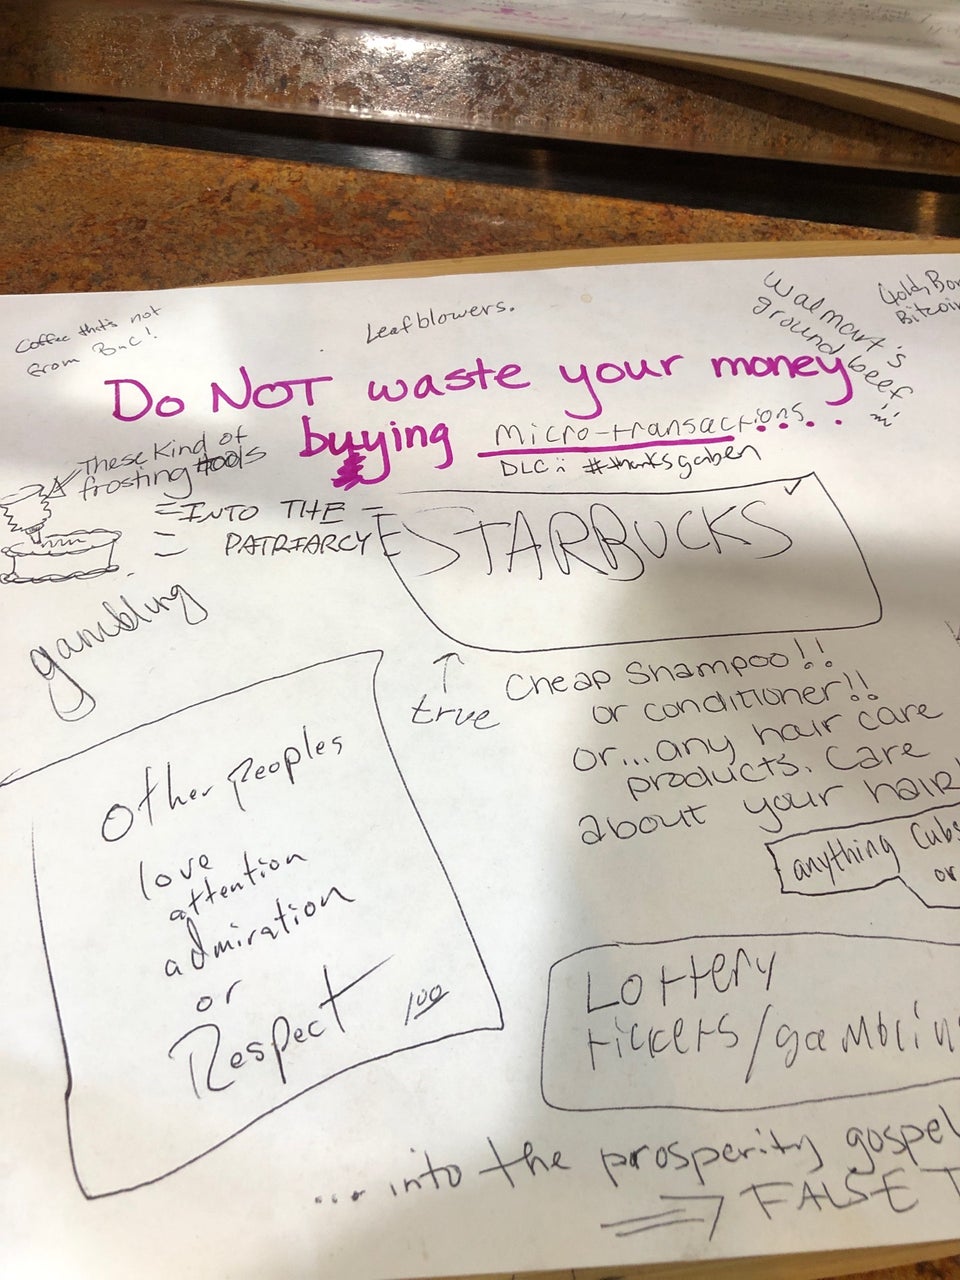 Coffee that's not
from BnC!
Leafblowers.
Walmart's
ground beef
Gold, Bon
Bitcoin
Do NOT waste your money
buying Micro-transactions....
DLC: #thanksgaben
These kind of
frosting tools
=INTO THE
= PATRIARCY
STARBUCKS
gambling
true
Cheap Shampoo!!
or conditioner!!
or...any hair care
products. Care
about your hair!
anything Cubs
or
Other peoples
love
attention
admiration
or
Respect 100
Lottery
tickets/gamblin
...into the prosperity gospel
FALSE T